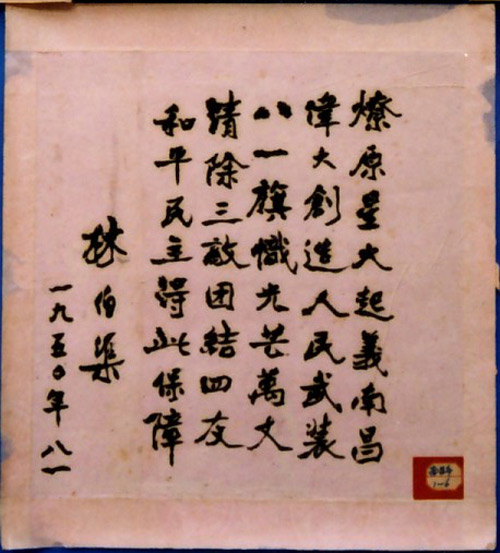 燎原星火起義南昌
偉大創造人民武装
八一旗幟光芒萬丈
清除三敵团結四友
和平民主得此保障
林伯渠
一九五〇年八一
1-6